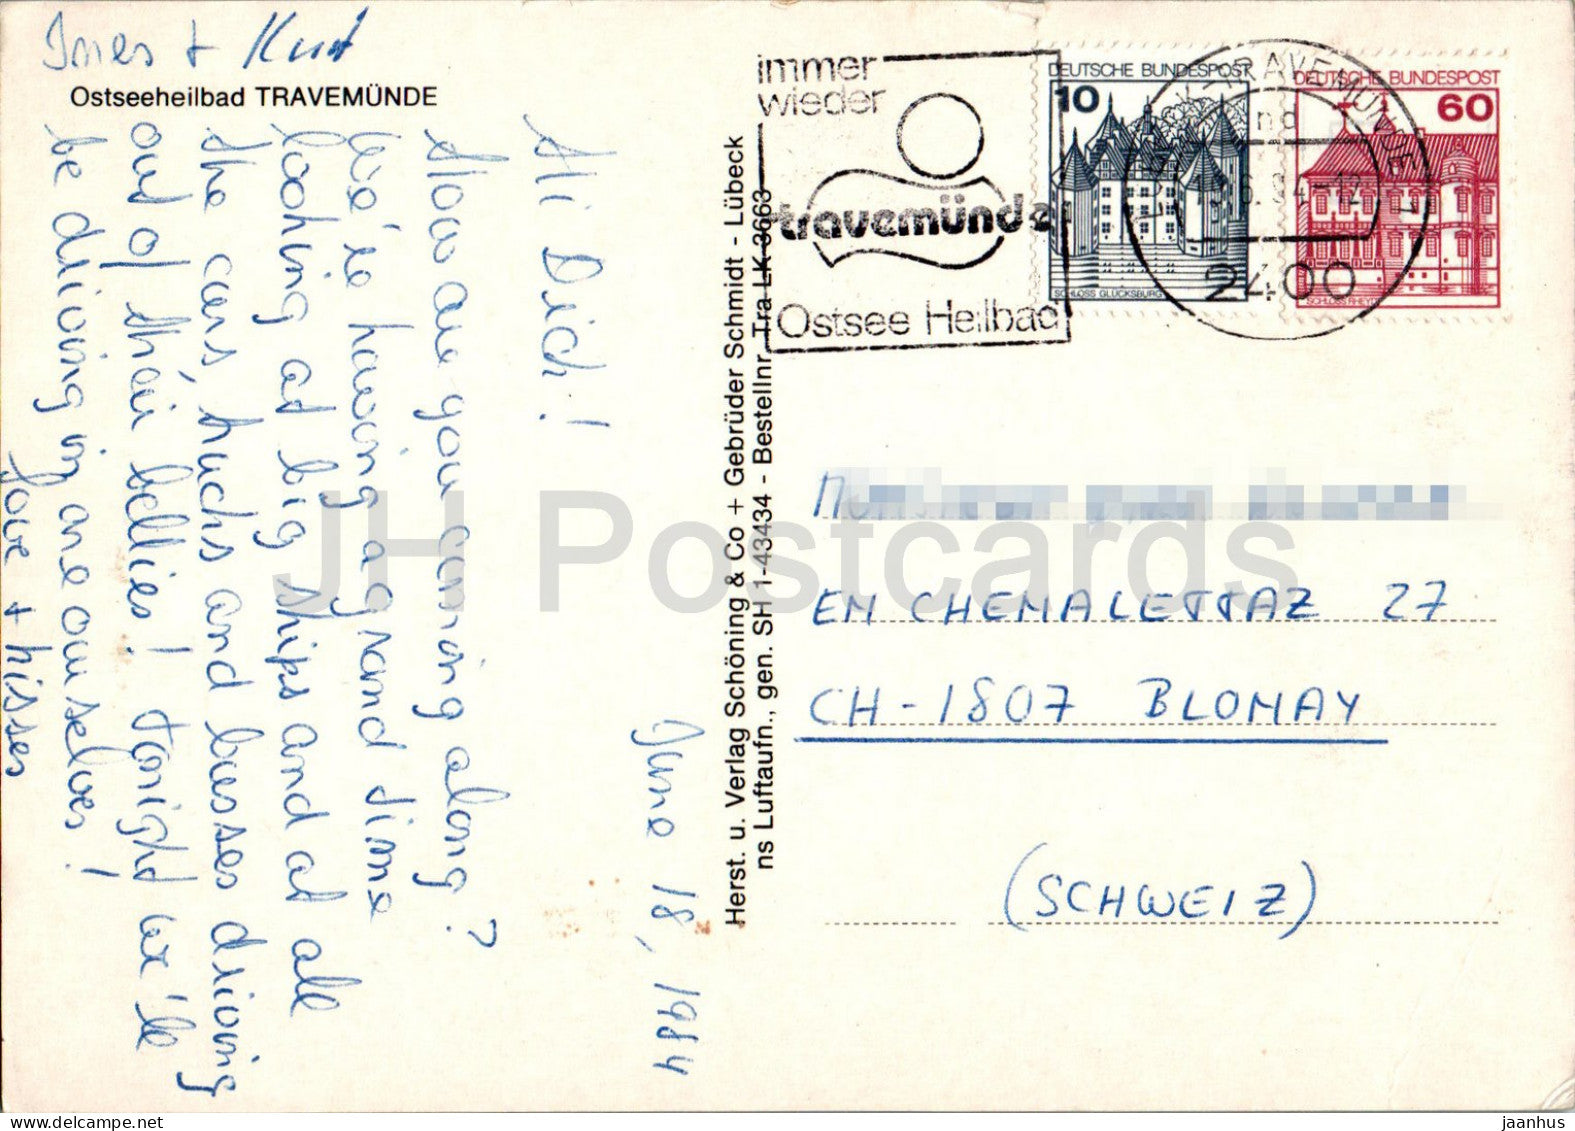 Ines + Kurt
Ostseeheilbad TRAVEMÜNDE
June 18, 1984
Hi Dick!
How are you coming along?
We're having a grand time
looking at big ships and at all
the cars, trucks and busses driving
out of their bellies! Tonight we'll
be driving in one ourselves!
Love + kisses
Herst. u. Verlag Schöning & Co + Gebrüder Schmidt - Lübeck
ns Luftaufn., gen. SH 1-43434 - Bestellnr. Tra LK 3663
immer
wieder
travemünde
Ostsee Heilbad
DEUTSCHE BUNDESPOST
10
SCHLOSS GLÜCKSBURG
DEUTSCHE BUNDESPOST
60
SCHLOSS RHEYDT
LÜBECK-TRAVEMÜNDE 1
2400
EN CHEMALETTAZ 27
CH-1807 BLONAY
(SCHWEIZ)
JH Postcards
jaanhus